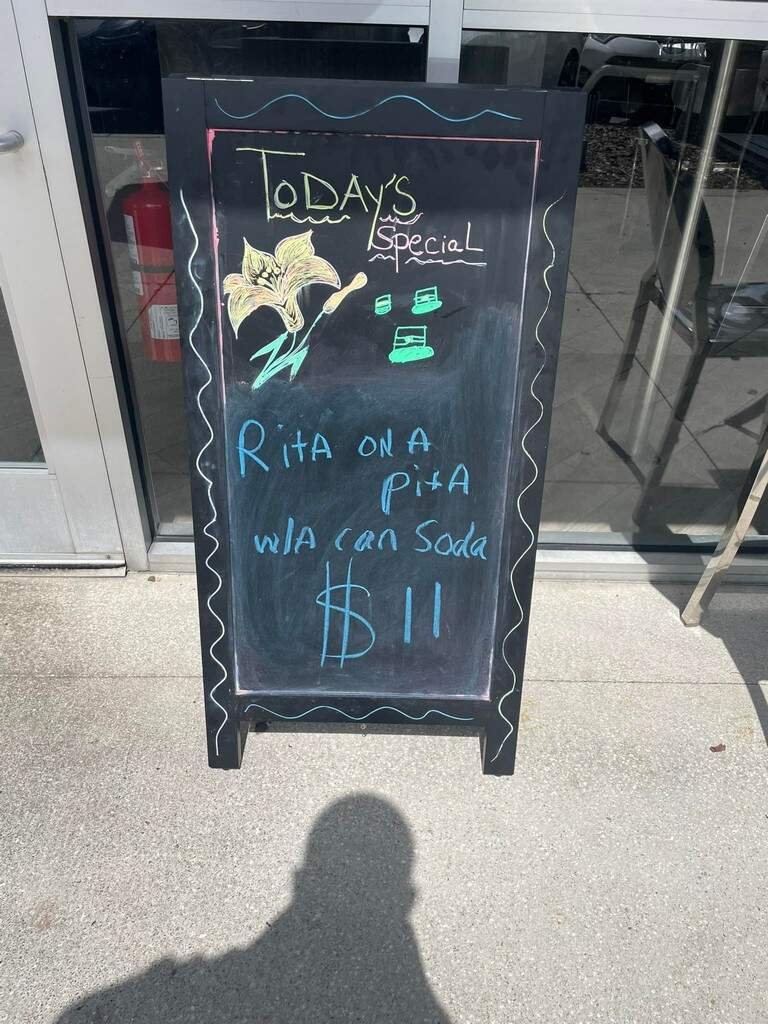 TODAY'S
SpeciaL
RitA ON A
pitA
w/A can Soda
$ 11